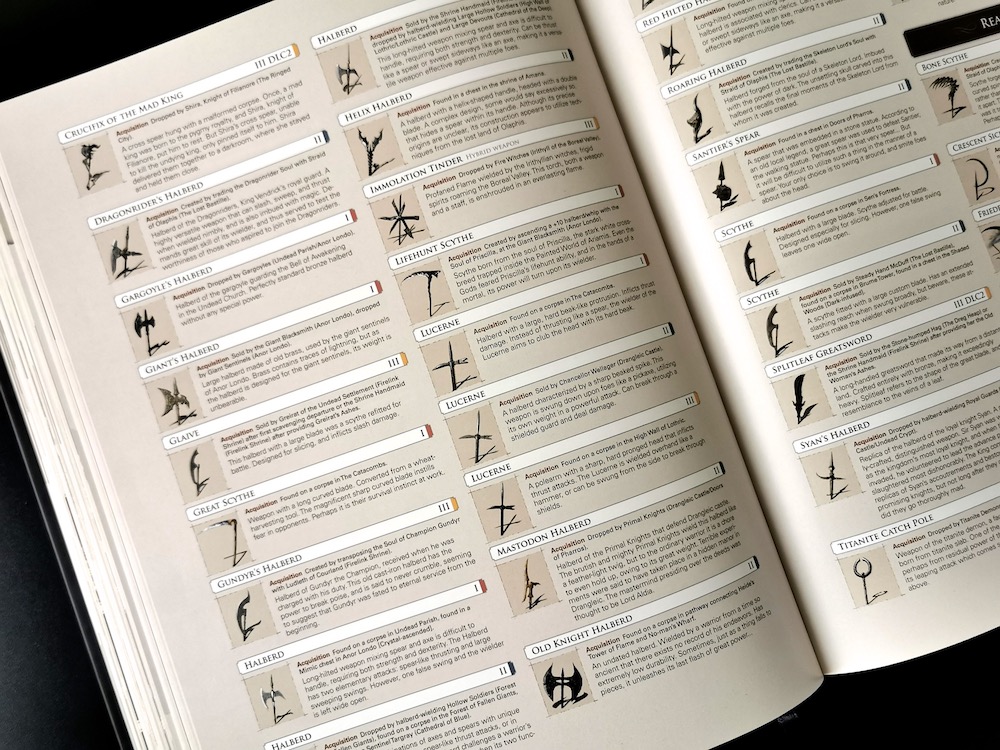 CRUCIFIX OF THE MAD KING III DLC2
Acquisition Dropped by Shira, Knight of Filianore (The Ringed
City).
A cross spear hung with a malformed corpse. Once, a mad
king was born to the pygmy royalty, and Shira, knight of
Filianore, put him to rest. But Shira's cross spear, unable
to kill the undying king, only pinned itself to him. Shira
delivered them together to a darkroom, where she stayed
and held them close.
DRAGONRIDER'S HALBERD II
Acquisition Created by trading the Dragonrider Soul with Straid
of Olaphis (The Lost Bastille).
Halberd of the Dragonriders, King Vendrick's royal guard. A
highly versatile weapon that can slash, sweep, and thrust
when wielded nimbly, and is also imbued with magic. De-
mands great skill of its wielder, and thus served to test the
worthiness of those who aspired to join the Dragonriders.
GARGOYLE'S HALBERD I
Acquisition Dropped by Gargoyles (Undead Parish/Anor Londo).
Halberd of the gargoyle guarding the Bell of Awakening
in the Undead Church. Perfectly standard bronze halberd
without any special power.
GIANT'S HALBERD I
Acquisition Sold by the Giant Blacksmith (Anor Londo), dropped
by Giant Sentinels (Anor Londo).
Large halberd made of old brass, used by the giant sentinels
of Anor Londo. Brass contains traces of lightning, but as
the halberd is designed for the giant sentinels, its weight is
unbearable.
GLAIVE III
Acquisition Sold by Greirat of the Undead Settlement (Firelink
Shrine) after first scavenging departure or the Shrine Handmaid
(Firelink Shrine) after providing Greirat's Ashes.
This halberd with a large blade was a scythe refitted for
battle. Designed for slicing, and inflicts slash damage.
GREAT SCYTHE I
Acquisition Found on a corpse in The Catacombs.
Weapon with a long curved blade. Converted from a wheat-
harvesting tool. The magnificent sharp curved blade instills
fear in opponents. Perhaps it is their survival instinct at work.
GUNDYR'S HALBERD III
Acquisition Created by transposing the Soul of Champion Gundyr
with Ludleth of Courland (Firelink Shrine).
Halberd of Gundyr the Champion, received when he was
charged with his duty. This old cast-iron halberd has the
power to break poise, and is said to never crumble, seeming
to suggest that Gundyr was fated to eternal service from the
beginning.
HALBERD I
Acquisition Found on a corpse in Undead Parish, found in a
Mimic chest in Anor Londo [Crystal-ascended].
Long-hilted weapon mixing spear and axe is difficult to
handle, requiring both strength and dexterity. The Halberd
has two elementary attacks: spear-like thrusting and large
sweeping swings. However, one false swing and the wielder
is left wide open.
HALBERD II
Acquisition Dropped by halberd-wielding Hollow Soldiers (Forest
of Fallen Giants), found on a corpse in the Forest of Fallen Giants,
Sentinel Targray (Cathedral of Blue).
of axes and spears with unique
spear-like thrust attacks, or in
and challenges a warrior's
its two func-
HALBERD
Acquisition Sold by the Shrine Handmaid (Firelink Shrine),
dropped by halberd-wielding Large Hollow Soldiers (High Wall of
Lothric/Lothric Castle) and Large Devouts (Cathedral of the Deep).
This long-hilted weapon mixing spear and axe is difficult to
handle, requiring both strength and dexterity. Can be thrust
like a spear or swept sideways like an axe, making it a versa-
tile weapon effective against multiple foes.
HELIX HALBERD II
Acquisition Found in a chest in the shrine of Amana.
A halberd with a helix-shaped handle, headed with a double
blade. A complex design, some would say excessively so,
that hides a subtle sophistication. Although its precise
origins are unclear, its construction appears to utilize tech-
niques from the lost land of Olaphis.
IMMOLATION TINDER HYBRID WEAPON III
Acquisition Dropped by Fire Witches (Irithyll of the Boreal Valley).
Profaned Flame wielded by the Irithyllian witches, frigid
spirits roaming the Boreal Valley. This torch, both a weapon
and a staff, is enshrouded in an everlasting flame.
LIFEHUNT SCYTHE I
Acquisition Created by ascending a +10 halberd/whip with the
Soul of Priscilla, at the Giant Blacksmith (Anor Londo).
Scythe born from the soul of Priscilla, the stark white cross-
breed trapped inside the Painted World of Ariamis. Even the
Gods feared Priscilla's lifehunt ability, and in the hands of a
mortal, its power will turn upon its wielder.
LUCERNE I
Acquisition Found on a corpse in The Catacombs.
Halberd with a large, hard beak-like protrusion. Inflicts thrust
damage. Instead of thrusting like a spear, the wielder of the
Lucerne aims to club the head with its hard beak.
LUCERNE II
Acquisition Sold by Chancellor Wellager (Drangleic Castle).
A halberd characterized by a sharp beaked spike. This
weapon is swung down upon foes like a pickaxe, utilizing
its own weight in a powerful attack. Can break through a
shielded guard and deal damage.
LUCERNE III
Acquisition Found on a corpse in the High Wall of Lothric.
A polearm with a sharp, hard pronged head that inflicts
thrust attacks. The Lucerne is wielded overhead like a
hammer, or can be swung from the side to break through
shields.
MASTODON HALBERD II
Acquisition Dropped by Primal Knights (Drangleic Castle/Doors
of Pharros).
Halberd of the Primal Knights that defend Drangleic castle.
The brutish and mighty Primal Knights wield this halberd like
a feather-light twig, but it is a chore
to even hold up, owing to its great weight. Terrible exper-
iments were said to have taken place in a hidden manor in
Drangleic. The mastermind presiding over the deeds was
thought to be Lord Aldia.
OLD KNIGHT HALBERD II
Acquisition Found on a corpse in pathway connecting Heide's
Tower of Flame and No-man's Wharf.
An undated halberd. Wielded by a warrior from a time so
ancient that there exists no record of his endeavors. Has
extremely low durability. Sometimes, just as a thing falls to
pieces, it unleashes its last flash of great power...
RED HILTED
Long-hilted weapon mixing
handle, requiring both strength
or swept sideways like an axe, making it a versa
effective against multiple foes.
ROARING HALBERD II
Acquisition Created by trading the Skeleton Lord's Soul with
Straid of Olaphis (The Lost Bastille).
Halberd forged from the soul of a Skeleton Lord. Imbued
with the power of dark. The unsettling skull carved into this
halberd recalls the final moments of the Skeleton Lord from
whom it was created.
SANTIER'S SPEAR II
Acquisition Found in a chest in Doors of Pharros.
A spear that was embedded in a stone statue. According to
an old local legend, a great spear was used to defeat Santier,
the walking statue. Perhaps, this is that very spear... But
it will be difficult to use such a thing in
spear. Your only choice is to swing it around, and smile foes
about the head.
SCYTHE I
Acquisition Found on a corpse in Sen's Fortress.
Halberd with a large blade. Scythe adjusted for battle.
Designed especially for slicing. However, one false swing
leaves one wide open.
SCYTHE II
Acquisition Sold by Steady Hand McDuff (The Lost Bastille),
found on a corpse in Brume Tower, found in a chest in the Shaded
Woods (Dark-infused).
A scythe fitted with a large custom blade. Has an extended
slashing reach when swung broadly, but beware, these at-
tacks make the wielder very vulnerable.
SPLITLEAF GREATSWORD III DLC2
Acquisition Sold by the Stone-humped Hag (The Dreg Heap) or
the Shrine Handmaid (Firelink Shrine) after providing her the Old
Woman's Ashes.
A long-handled greatsword that made its way from a distant
land. Crafted entirely with bronze, making it exceedingly
heavy. Splitleaf refers to the shape of the great blade, and
resemblance to the veins of a leaf.
SYAN'S HALBERD
Acquisition Dropped by halberd-wielding Royal Guard
Castle/Undead Crypt).
Replica of the halberd of the loyal knight Syan. A
ly-crafted, distinguished weapon. Sir Syan was
as the kingdom's most loyal knight, and when
invaded, he volunteered to lead the advance
slaughtered most distinguishedly. The king
replicas of Syan's accoutrements and bestowed
promising knights, but not long thereafter
did they go thoroughly mad.
TITANITE CATCH POLE
Acquisition Dropped by Titanite Demons
Weapon of the titanite demon, a
born from titanite slab. One of the
perhaps from residual power of
its leaping attack which comes
above.
REA
BONE SCYTHE
Acquisition
Straid of
CRESCENT
FRIED